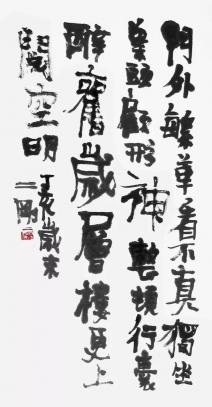 門外繁草看不真獨坐
案頭顧形神整頓行囊
醉舊歲層樓更上
闊空明
丁亥歲末
二剛